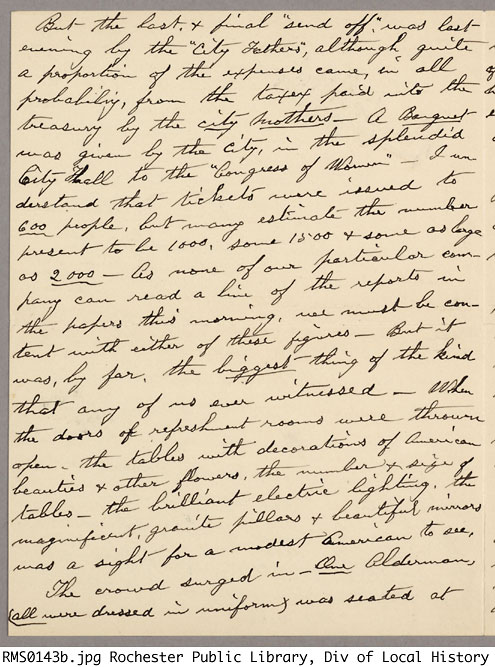 But the last, & final "send off", was last
evening by the "City Fathers", although quite
a proportion of the expenses came, in all
probabiliy, from the taxes paid into the
treasury by the city mothers — A Banquet
was given by the city, in the splendid
City Hall to the "Congress of Women" — I un-
derstand that tickets were issued to
600 people, but many estimate the number
present to be 1000, some 1500 & some as large
as 2000 — As none of our particular com-
pany can read a line of the reports in
the papers this morning, we must be con-
tent with either of these figures — But it
was, by far, the biggest thing of the kind
that any of us ever witnessed — When
the doors of refreshment rooms were thrown
open — the tables with decorations of American
beauties & other flowers, the number & size of
tables — the brilliant electric lighting, the
magnificent, granite pillars & beautiful mirrors
was a sight for a modest American to see,
The crowd surged in — One Alderman,
(all were dressed in uniform) was seated at
RMS0143b.jpg Rochester Public Library, Div of Local History